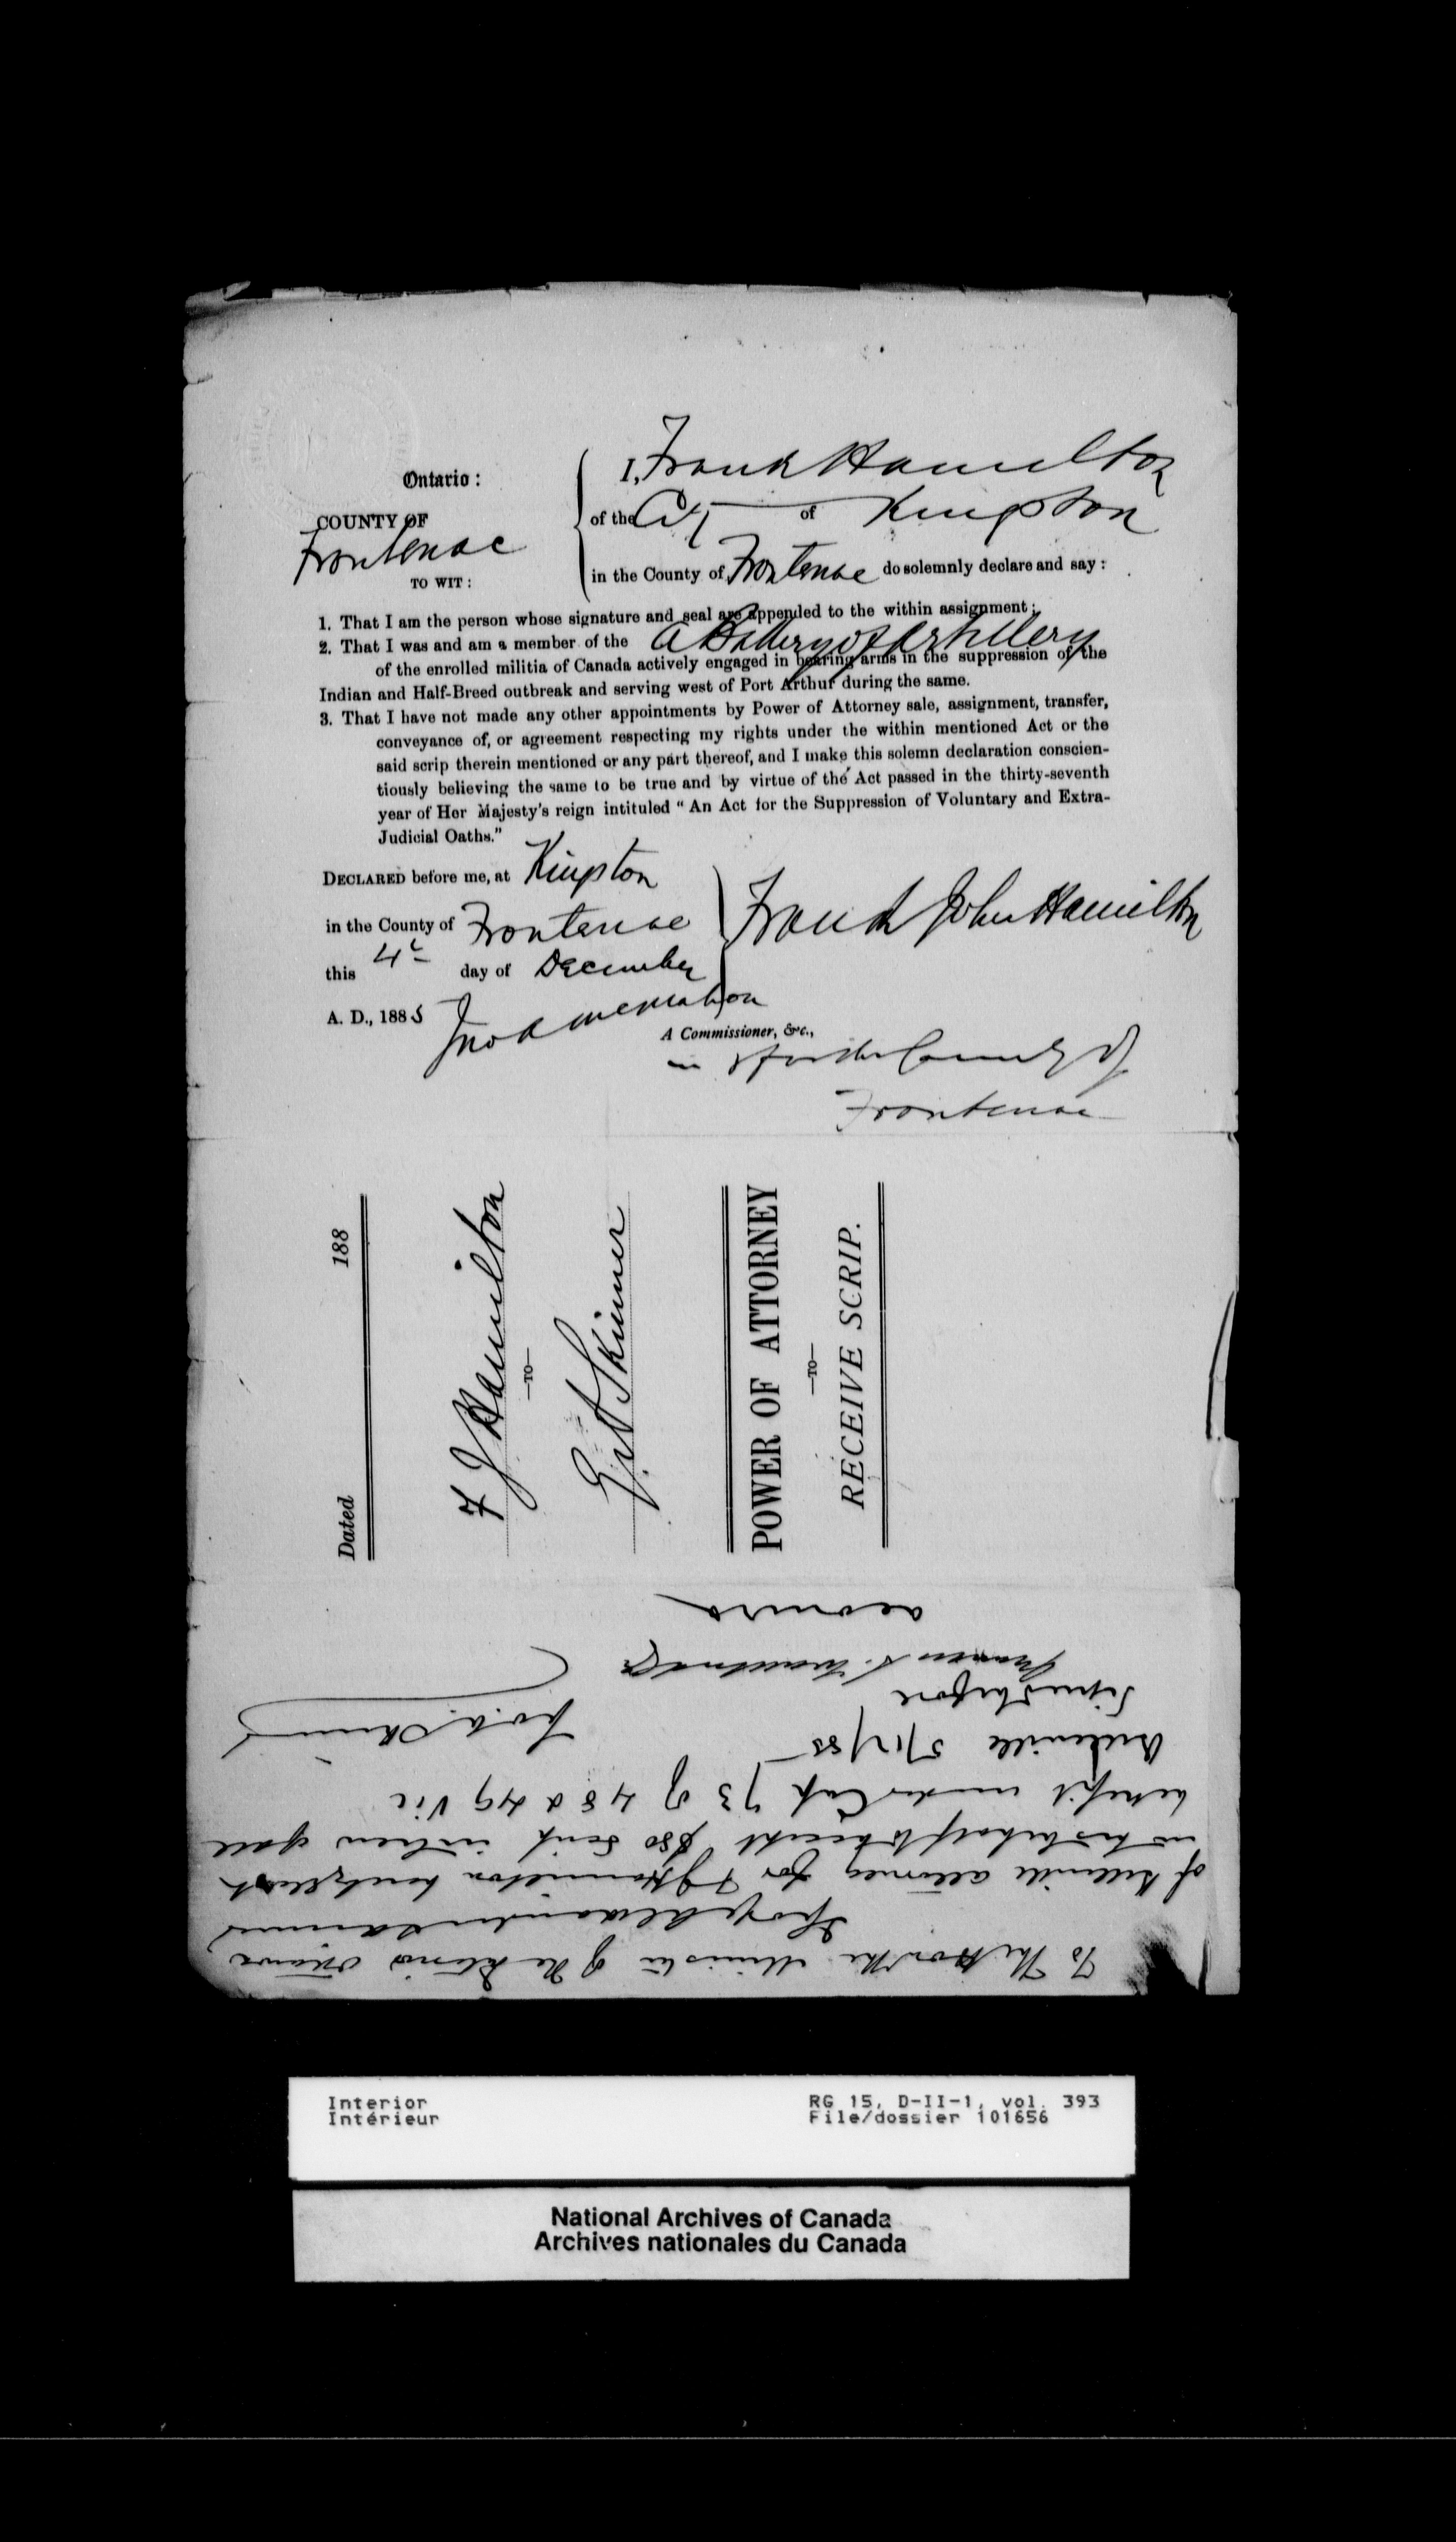 Ontario :
COUNTY OF
Frontenac
TO WIT :
I, Frank Hamilton
of the City of Kingston
in the County of Frontenac do solemnly declare and say :
1. That I am the person whose signature and seal are appended to the within assignment ;
2. That I was and am a member of the A Battery of Artillery
of the enrolled militia of Canada actively engaged in bearing arms in the suppression of the
Indian and Half-Breed outbreak and serving west of Port Arthur during the same.
3. That I have not made any other appointments by Power of Attorney sale, assignment, transfer,
conveyance of, or agreement respecting my rights under the within mentioned Act or the
said scrip therein mentioned or any part thereof, and I make this solemn declaration conscien-
tiously believing the same to be true and by virtue of the Act passed in the thirty-seventh
year of Her Majesty's reign intituled " An Act for the Suppression of Voluntary and Extra-
Judicial Oaths."
DECLARED before me, at Kingston
in the County of Frontenac
this 4th day of December
A. D., 1885
Frank John Hamilton
Jno A McMahon
A Commissioner, &c.,
in & for the County of
Frontenac
Dated 188
F J Hamilton
—TO—
Skinner
POWER OF ATTORNEY
—TO—
RECEIVE SCRIP.
To The Hon the Minister of the Interior Ottawa
George Alexander Skinner
of Belleville attorney for F J Hamilton hereby elect
in his behalf to accept $80 Scrip in lieu of all
benefit under Cap 73 of 48 & 49 Vic
Belleville 5/12/85
Signed before
Geo. A. Skinner
Interior
Intérieur
RG 15, D-II-1, vol. 393
File/dossier 101656
National Archives of Canada
Archives nationales du Canada